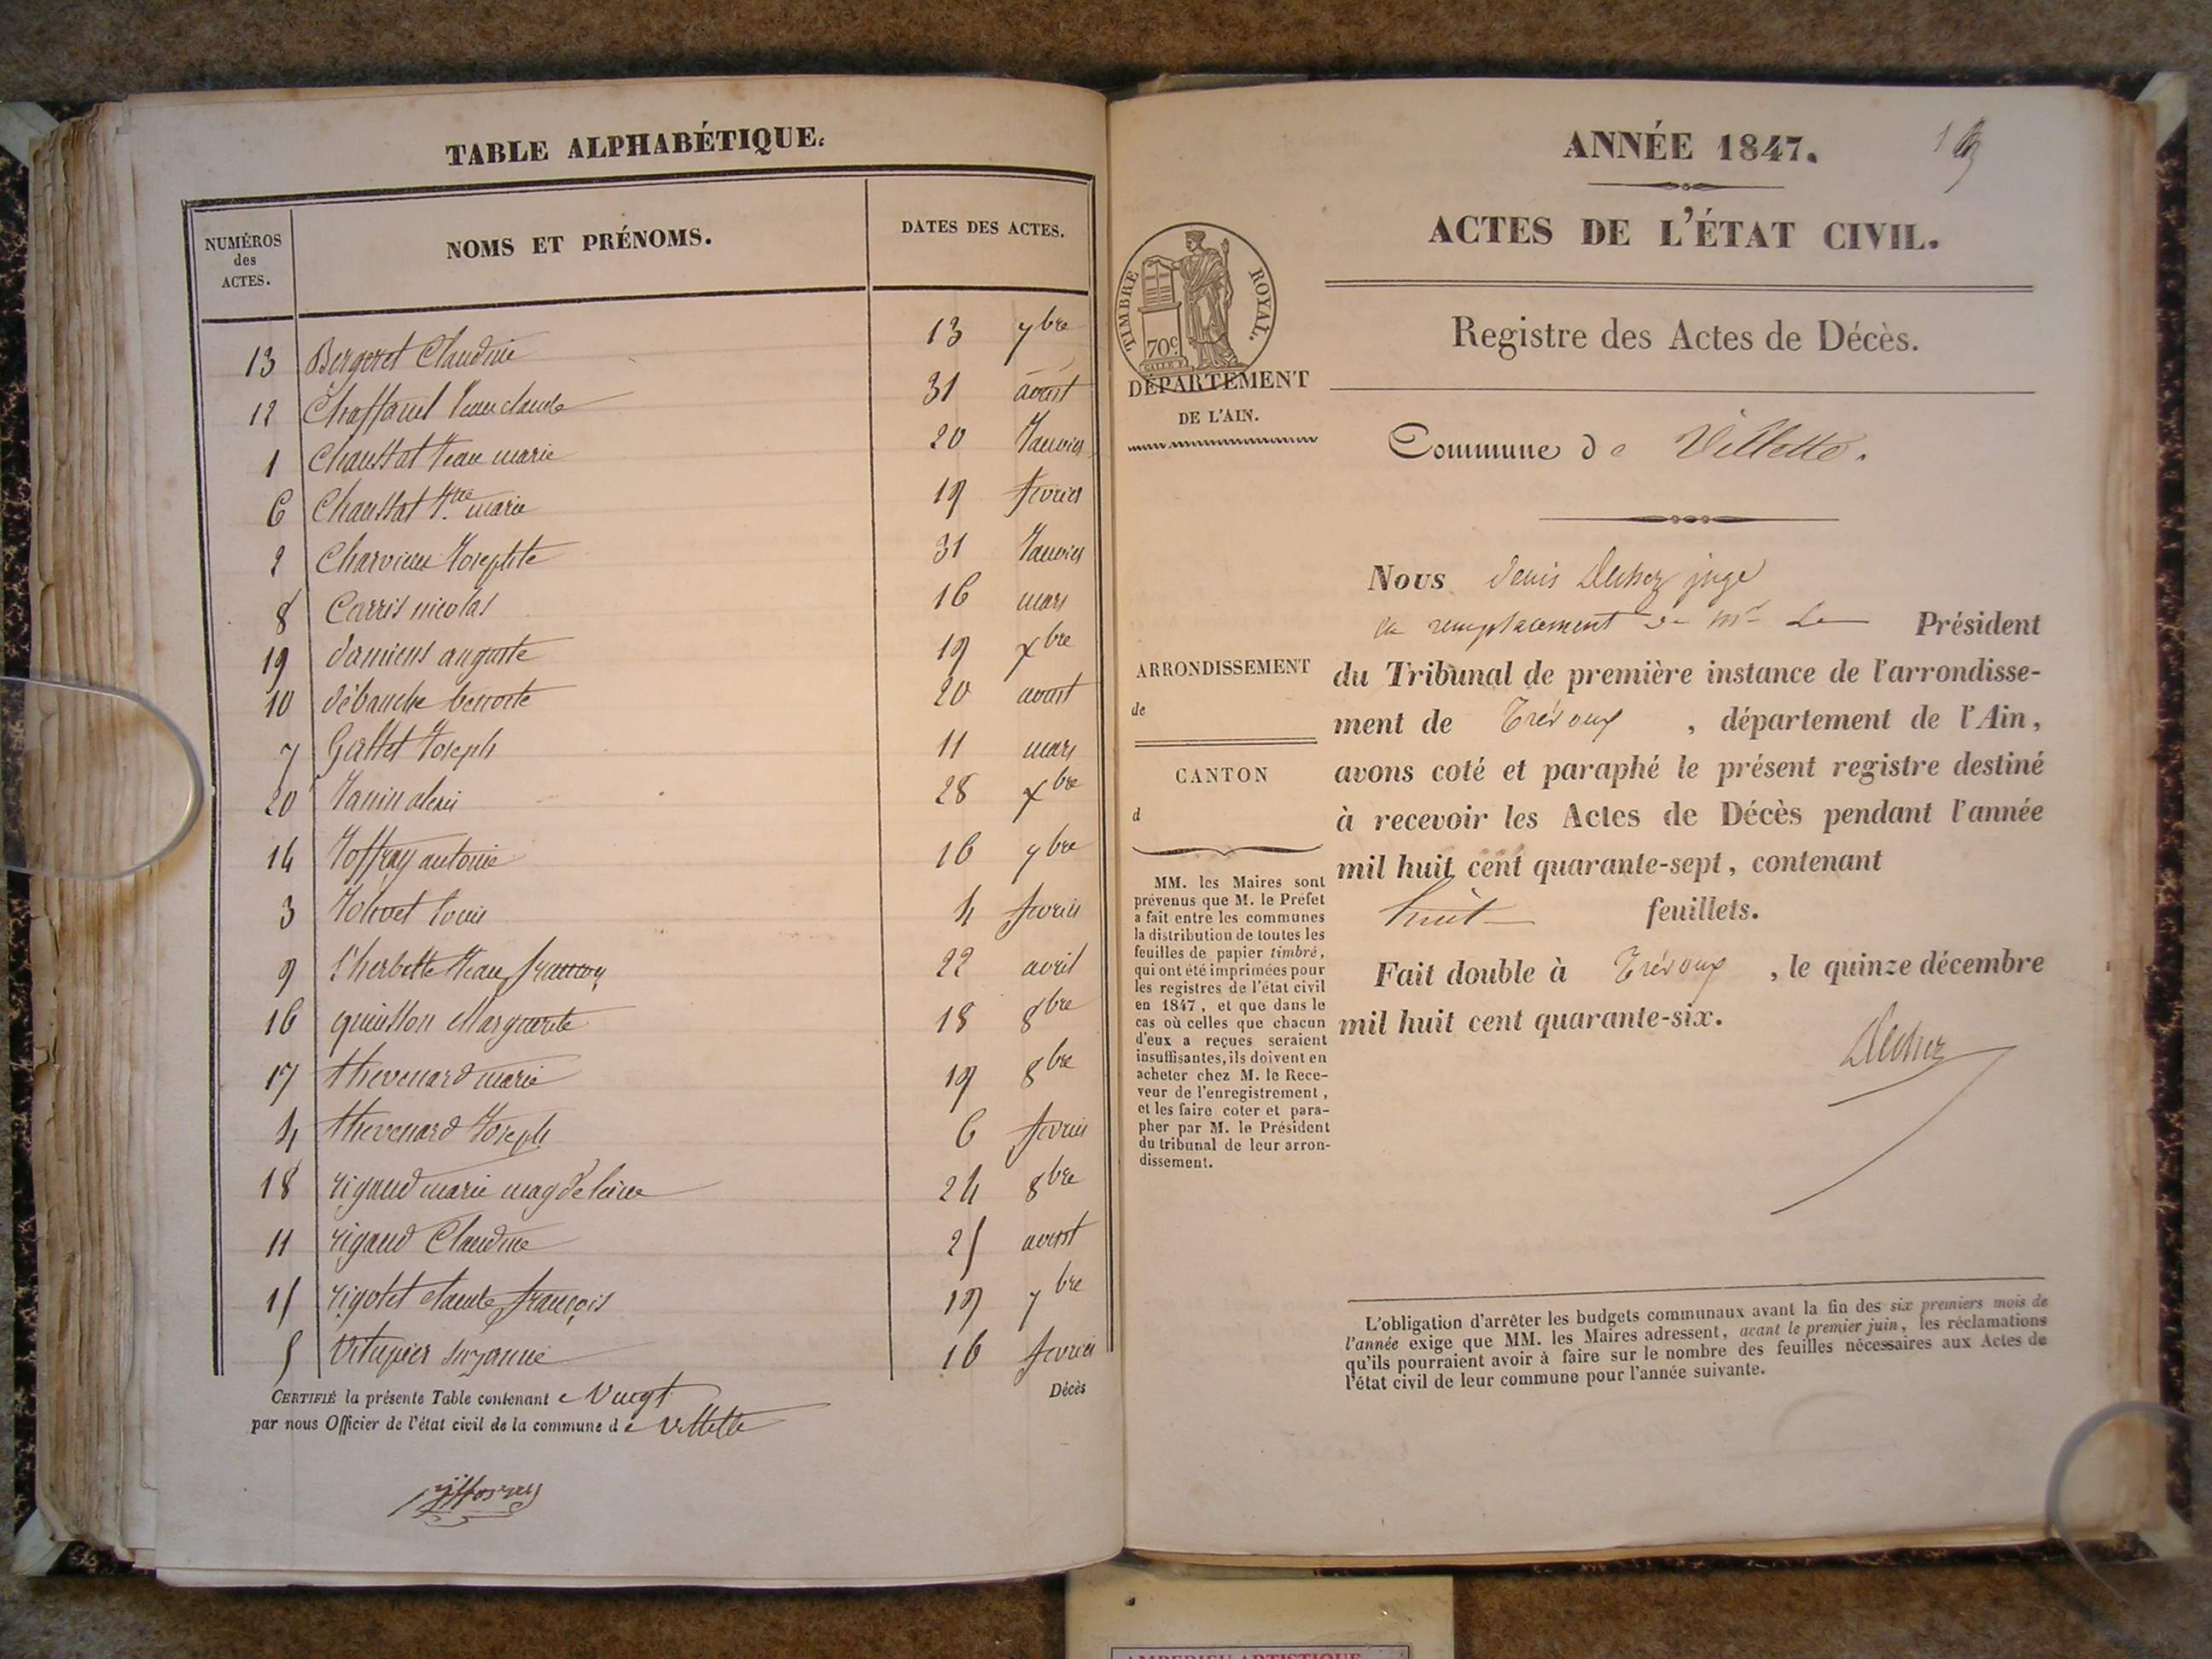 TABLE ALPHABÉTIQUE.
NUMÉROS des ACTES. NOMS ET PRÉNOMS. DATES DES ACTES.
13 Bergeret Claudine 13 7bre
12 Chaffanel Jean claude 31 aoust
1 Chaussat Jean marie 20 Janvier
6 Chaussat Jne marie 19 fevrier
2 Charvieux Josephte 31 Janvier
8 Carris nicolas 16 mars
19 damiens auguste 19 xbre
10 débauche benoite 20 aoust
7 Gallet Joseph 11 mars
20 Janin alexis 28 xbre
14 Joffray antoine 16 7bre
3 Jolivet Louis 4 fevrier
9 l'herbette Jean françois 22 avril
16 quinsson Marguerite 18 8bre
17 thevenard marie 19 8bre
4 thevenard Joseph 6 fevrier
18 rigaud marie magdeleine 24 8bre
11 rigaud Claudine 25 aoust
15 rigolet claude françois 19 7bre
5 Vitupier suzanne 16 fevrier
CERTIFIÉ la présente Table contenant Vingt Décès
par nous Officier de l'état civil de la commune de Villette
ANNÉE 1847.
ACTES DE L'ÉTAT CIVIL.
TIMBRE ROYAL.
70c
DÉPARTEMENT
DE L'AIN.
Registre des Actes de Décès.
Commune de Villette.
Nous Denis juge
en remplacement de Mr Le Président
du Tribunal de première instance de l'arrondisse-
ment de Trévoux, département de l'Ain,
avons coté et paraphé le présent registre destiné
à recevoir les Actes de Décès pendant l'année
mil huit cent quarante-sept, contenant
huit feuillets.
Fait double à Trévoux, le quinze décembre
mil huit cent quarante-six.
ARRONDISSEMENT
de
CANTON
d
MM. les Maires sont
prévenus que M. le Préfet
a fait entre les communes
la distribution de toutes les
feuilles de papier timbré,
qui ont été imprimées pour
les registres de l'état civil
en 1847, et que dans le
cas où celles que chacun
d'eux a reçues seraient
insuffisantes, ils doivent en
acheter chez M. le Rece-
veur de l'enregistrement,
et les faire coter et para-
pher par M. le Président
du tribunal de leur arron-
dissement.
L'obligation d'arrêter les budgets communaux avant la fin des six premiers mois de
l'année exige que MM. les Maires adressent, avant le premier juin, les réclamations
qu'ils pourraient avoir à faire sur le nombre des feuilles nécessaires aux Actes de
l'état civil de leur commune pour l'année suivante.